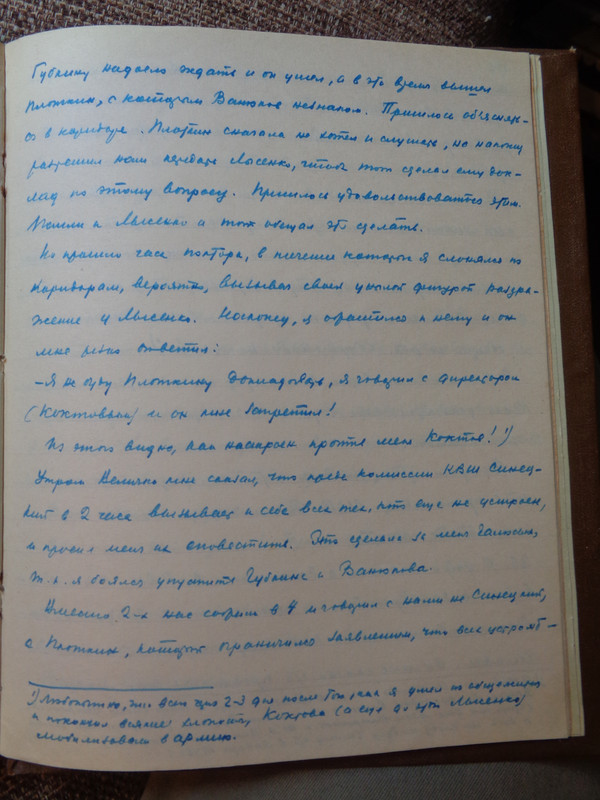 Губкину надоело ждать и он ушел, а в это время вышел
Плоткин, с которым Ванюков незнаком. Пришлось объяснять-
ся в коридоре. Плоткин сначала не хотел и слушать, но наконец
разрешил нам передать Лысенко, чтобы тот сделал ему док-
лад по этому вопросу. Пришлось удовольствоваться этим.
Пошли к Лысенко и тот обещал это сделать.
Но прошло часа полтора, в течение которых я слонялся по
коридорам, вероятно, вызывая своей унылой фигурой раздра-
жение у Лысенко. Наконец, я обратился к нему и он
мне резко ответил:
– Я не буду Плоткину докладывать, я говорил с директором
(Коктовым) и он мне запретил!
Из этого видно, как настроен против меня Коктов! ¹)
Утром Величко мне сказал, что пред. комиссии НВШ Синец-
кий в 2 часа вызывает к себе всех тех, кто еще не устроен,
и просил меня их оповестить. Это сделала за меня
т.к. я боялся упустить Губкина и Ванюкова.
Вместо 2-х нас собрали в 4 и говорил с нами не Синецкий,
а Плоткин, который ограничился заявлением, что всех устроят –
¹) Любопытно, что всего через 2–3 дня после того, как я ушел из общежития
и покончил всякие Коктова (а еще до этого Лысенко)
мобилизовали в армию.